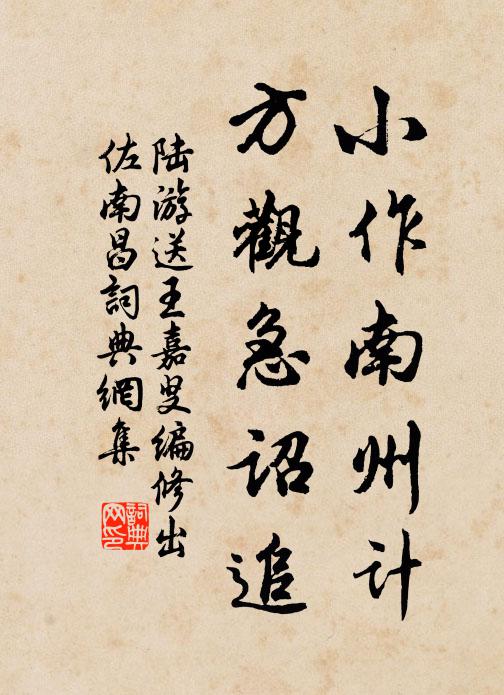 小作南州計
方觀急詔追
陆游送王嘉叟编修出
佐南昌詞典網集
詞典网印